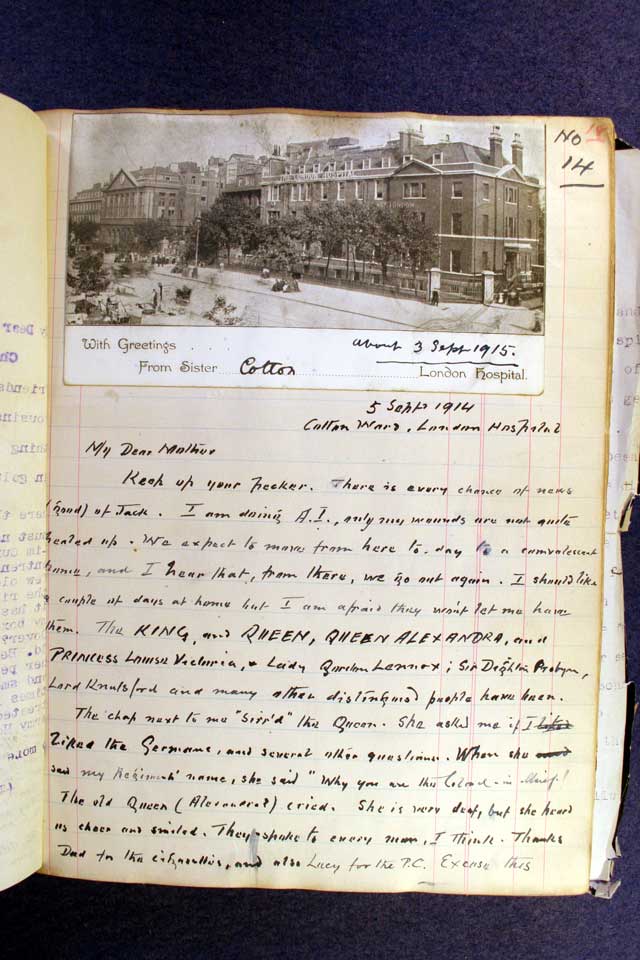 No 14
THE LONDON HOSPITAL
With Greetings . . . .
about 3 Sept 1915.
From Sister Cotton London Hospital.
5 Sept 1914
Cotton Ward, London Hospital
My Dear Mother
Keep up your pecker. There is every chance of news
(good) of Jack. I am doing A.I., only my wounds are not quite
healed up. We expect to move from here to-day to a convalescent
home, and I hear that, from there, we go out again. I should like
a couple of days at home but I am afraid they won't let me have
them. The KING, and QUEEN, QUEEN ALEXANDRA, and
PRINCESS Louise Victoria, & Lady Gordon Lennox; Sir Dighton Probyn,
Lord Knutsford and many other distinguished people have been.
The chap next to me "Sirr'd" the Queen. She asked me if I
liked the Germans, and several other questions. When she
said my Regiment's name, she said "Why you are the Colonel-in-Chief!
The old Queen (Alexandra?) cried. She is very deaf, but she heard
us cheer and smiled. They spoke to every man, I think. Thanks
Dad for the cigarettes, and also Lucy for the P.C. Excuse this